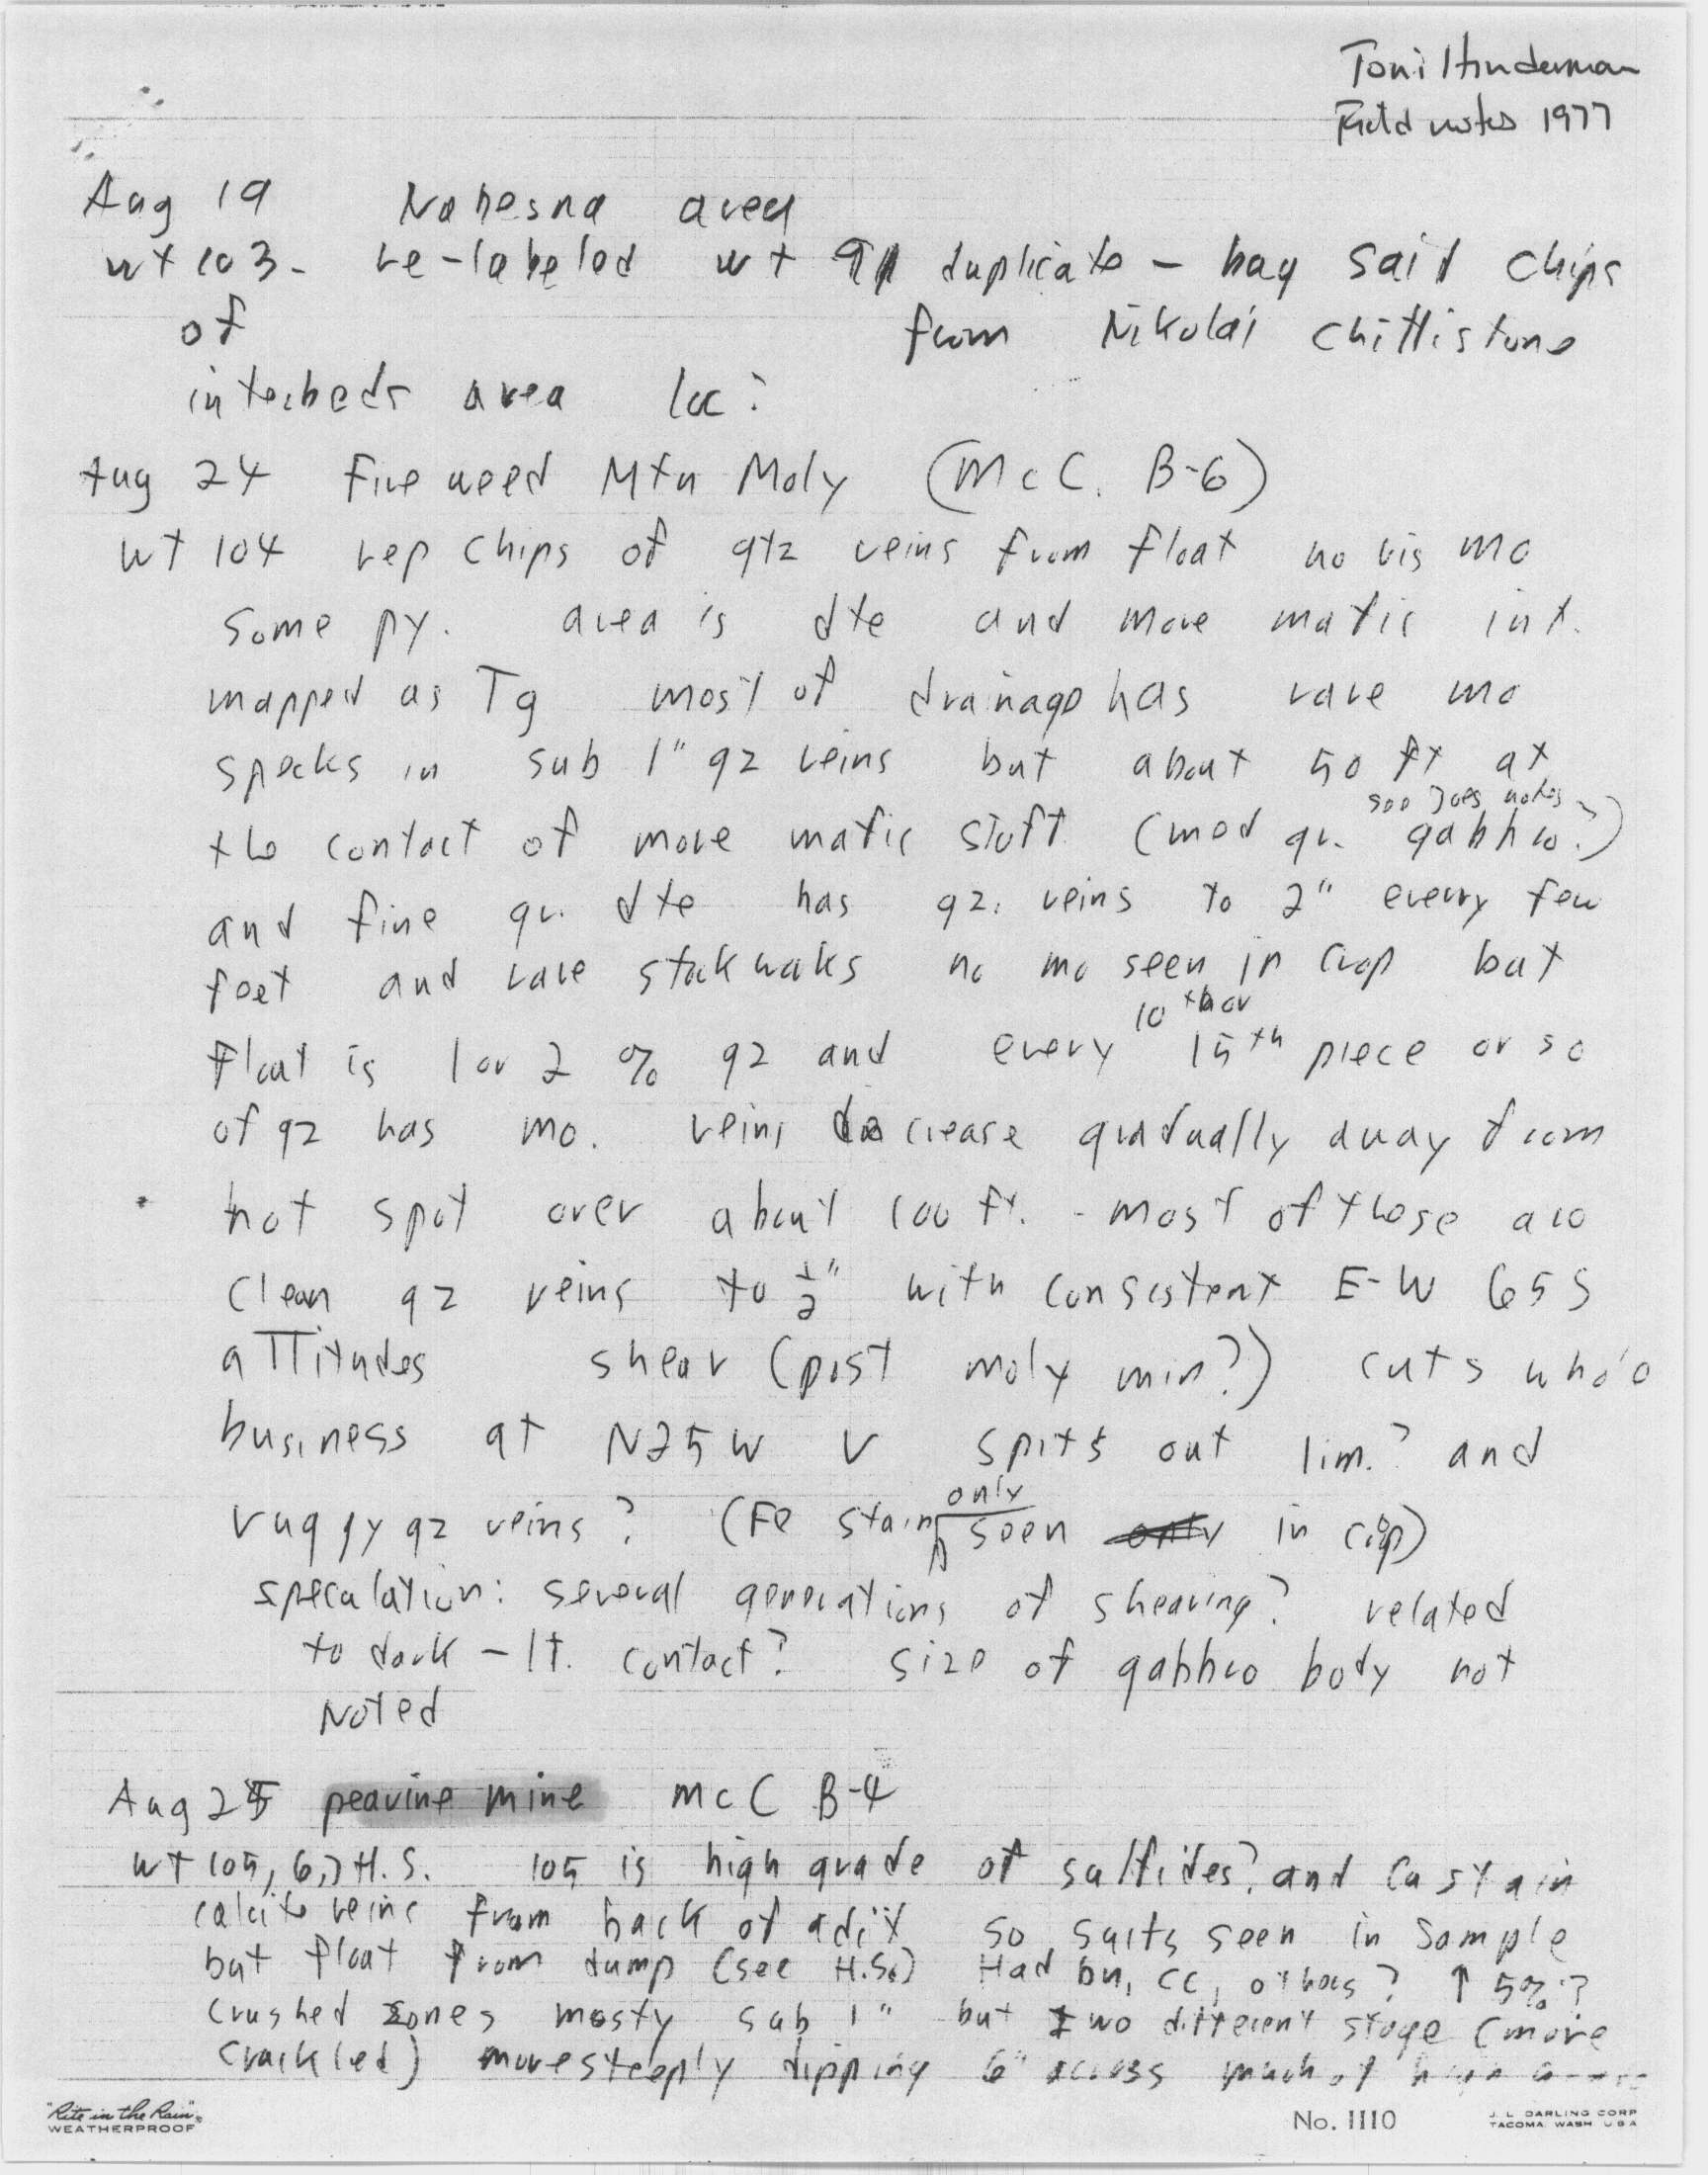 Toni Hinderman
Field notes 1977
Aug 19 Nabesna area
wt 103 - re-labeled wt 91 duplicate - bag said chips
of from Nikolai Chittistone
interbeds area loc?
Aug 24 Fireweed Mtn Moly (McC. B-6)
wt 104 rep chips of qtz veins from float no vis mo
some py. area is dte and more mafic int.
mapped as Tg most of drainage has rare mo
specks in sub 1" qz veins but about 50 ft at
see Joes notes
the contact of more mafic stuff (med gr. gabbro?)
and fine gr. dte has qz. veins to 2" every few
feet and rare stockworks no mo seen in crop but
10th or
float is 1 or 2 % qz and every 15th piece or so
of qz has mo. veins decrease gradually away from
hot spot over about 100 ft. - most of these are
clean qz veins to 1/2" with consistent E-W 65S
attitudes shear (post moly min?) cuts whole
business at N25W V spits out lim.? and
only
vuggy qz veins? (Fe stain seen only in crop)
speculation: several generations of shearing? related
to dark - lt. contact? size of gabbro body not
noted
Aug 25 peavine mine McC B-4
wt 105, 6, 7 H.S. 105 is high grade of sulfides? and Cu stain
calcite veins from back of adit so sulfs seen in sample
but float from dump (see H.S.) Had bn, cc, others? ↑ 5%?
crushed zones mosty sub 1" but two different stage (more
crackled) more steeply dipping 6" across much of
"Rite in the Rain"
WEATHERPROOF
No. 1110
J. L. DARLING CORP
TACOMA, WASH. U S A